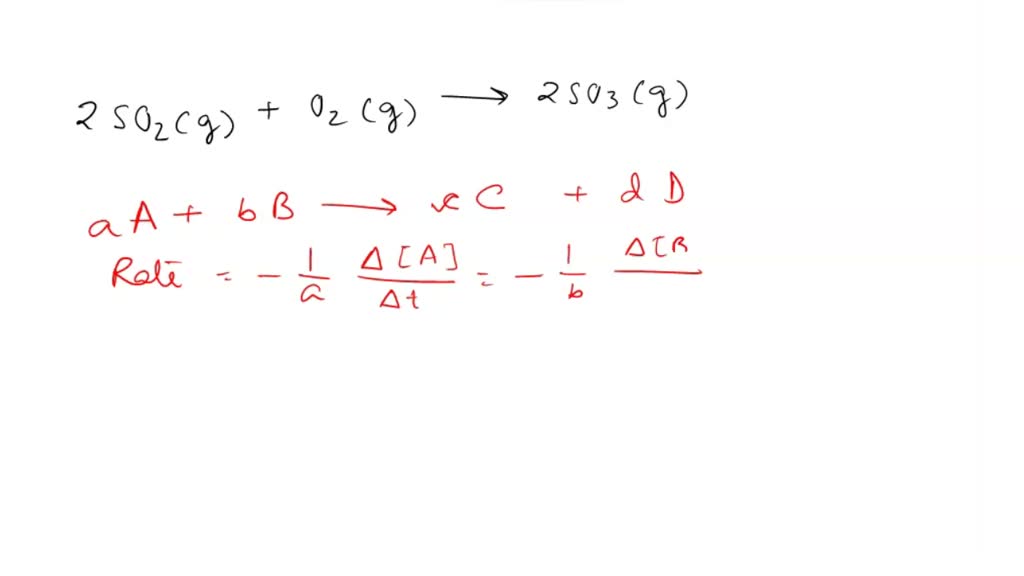 2 SO₂(g) + O₂(g) ⟶ 2 SO₃(g)
a A + b B ⟶ c C + d D
Rate = - 1/a Δ[A]/Δt = - 1/b Δ[B